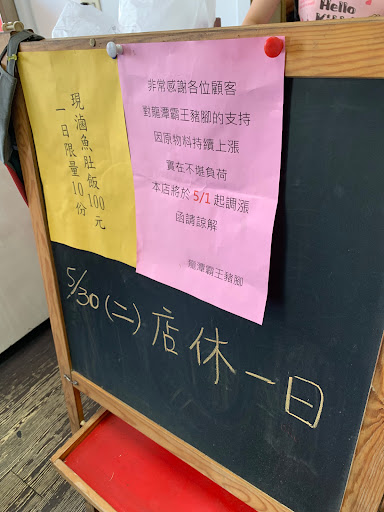 Hello
現滷魚肚飯100元
一日限量10份
非常感謝各位顧客
對龍潭霸王豬腳的支持
因原物料持續上漲
實在不堪負荷
本店將於 5/1 起調漲
函請諒解
龍潭霸王豬腳
5/30(二)店休一日